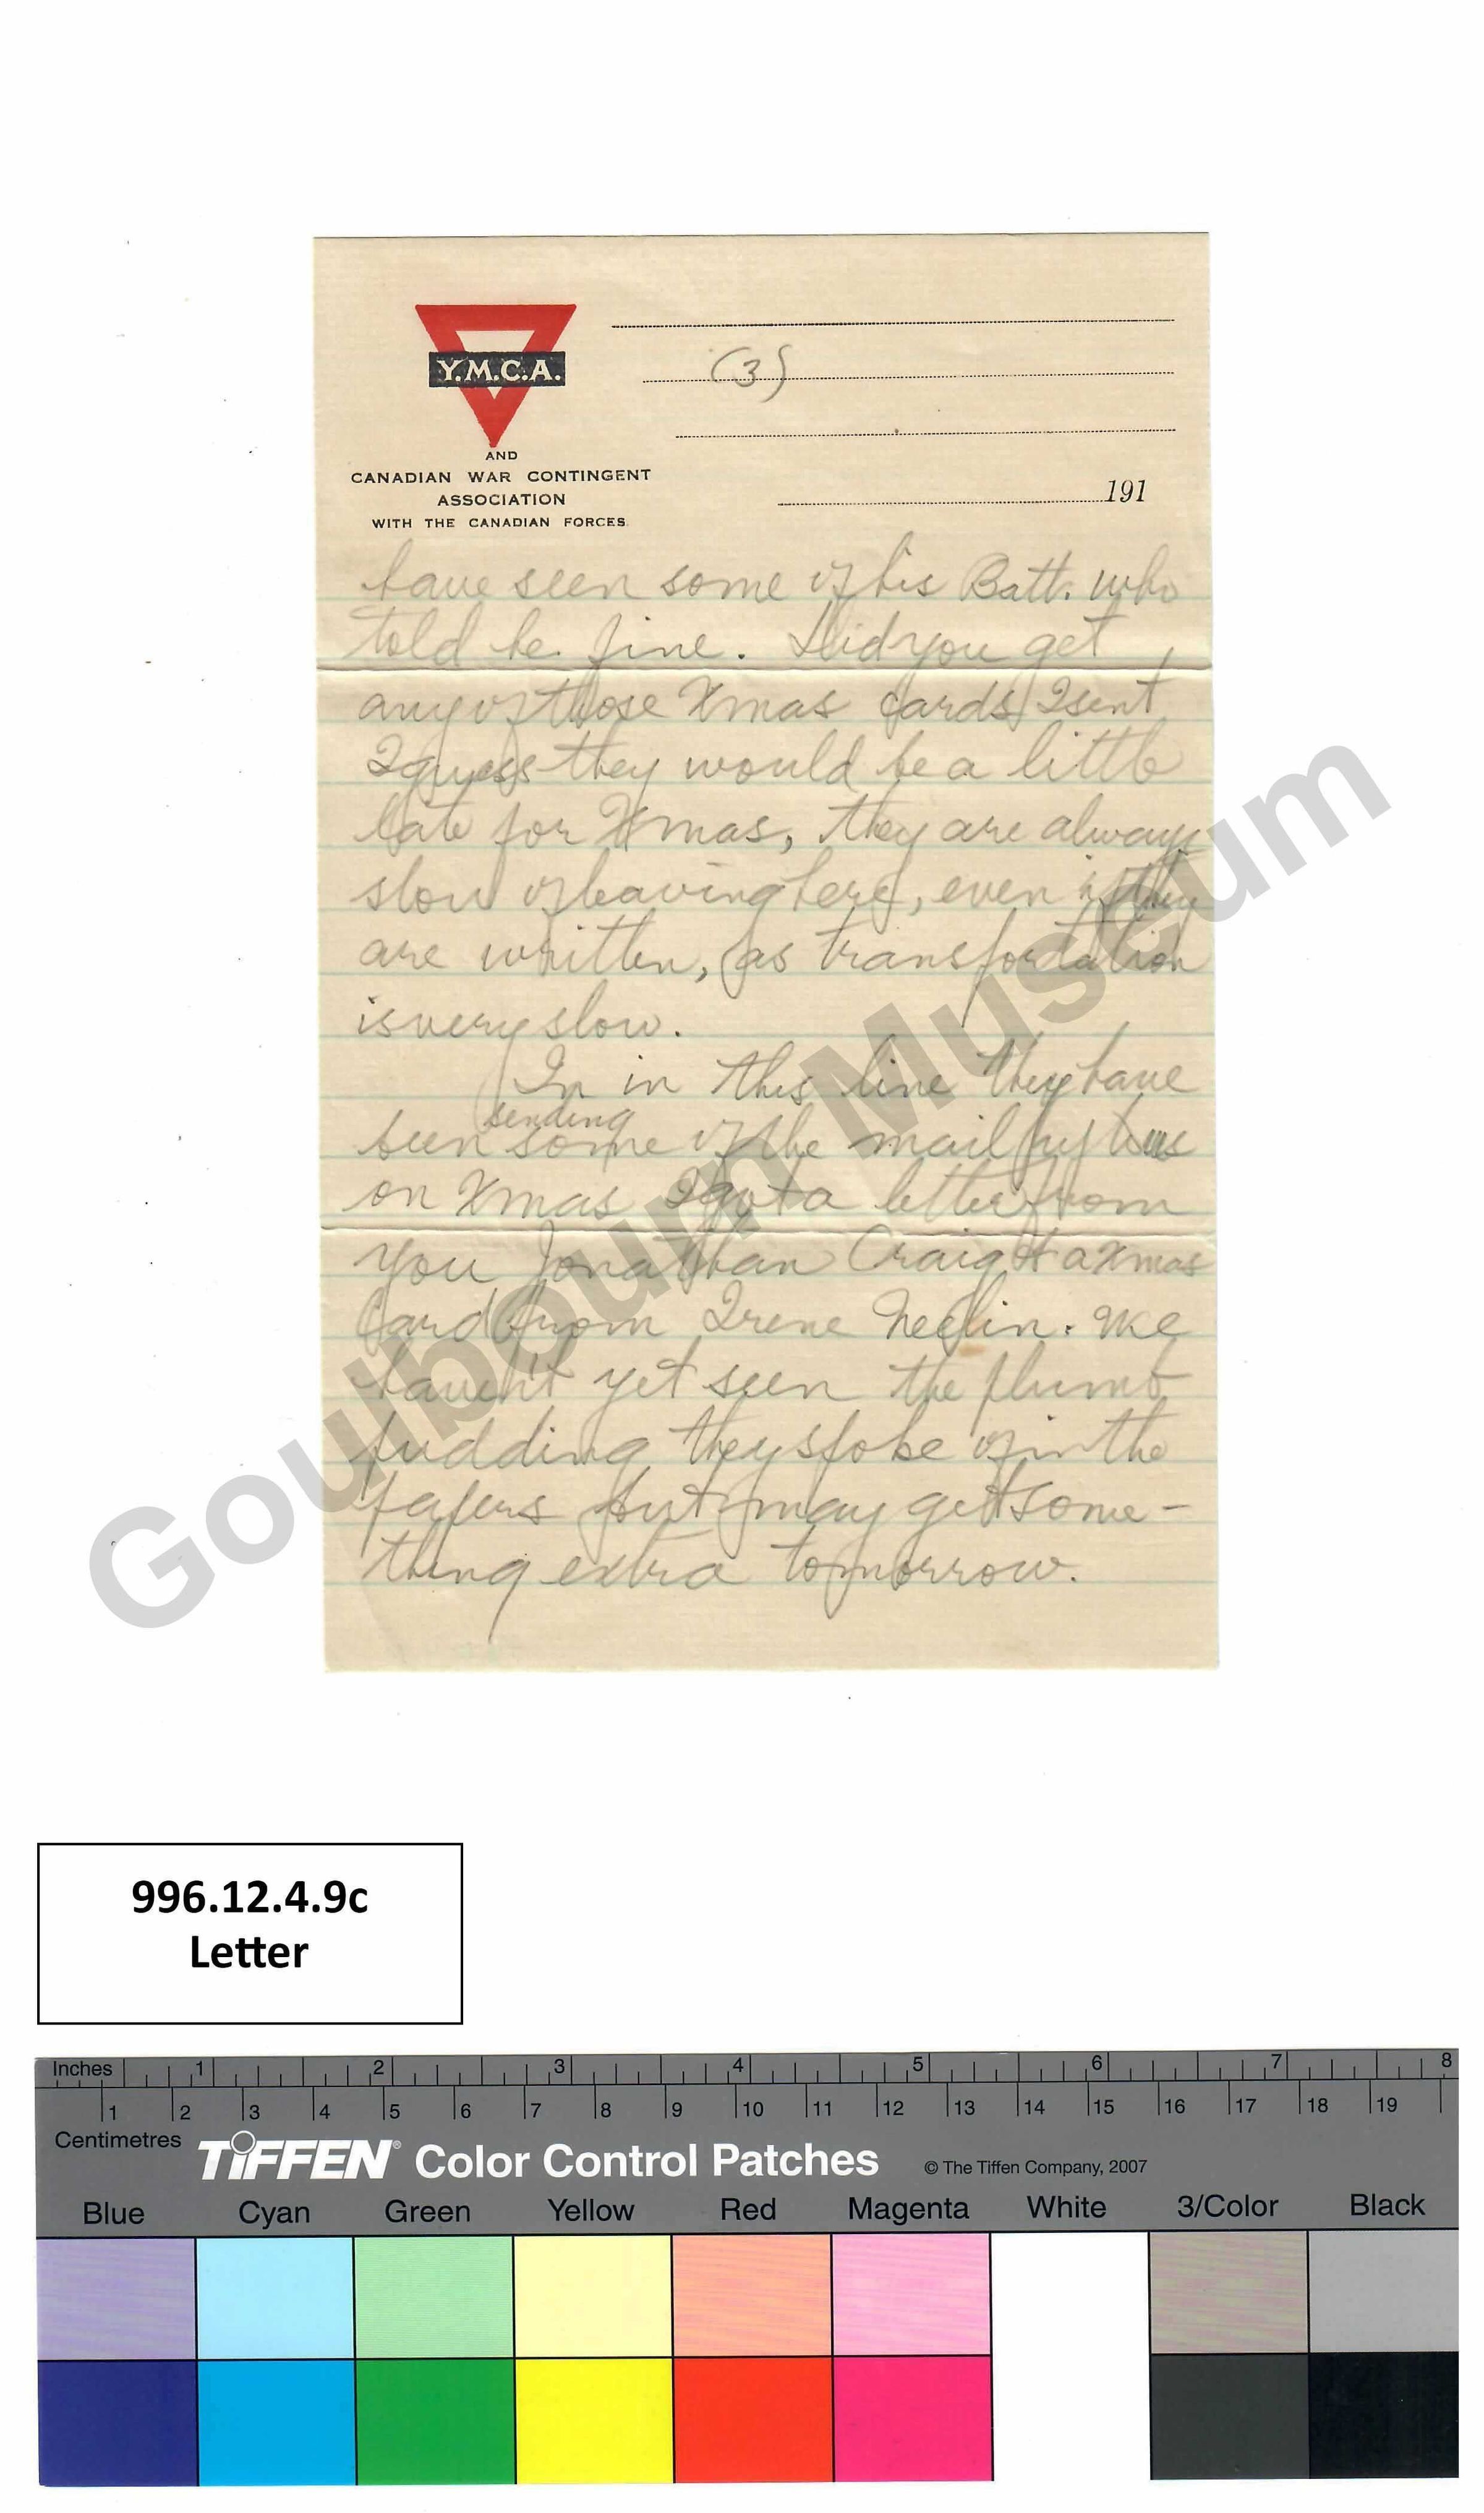 Y.M.C.A.
AND
CANADIAN WAR CONTINGENT
ASSOCIATION
WITH THE CANADIAN FORCES.
(3)
191
have seen some of his Batt. who
told he fine. Did you get
any of those Xmas cards I sent
I guess they would be a little
late for Xmas, they are always
slow of leaving here, even if they
are written, as transportation
is very slow.
In in this line they have
sending
been some of the mail by bus
on Xmas I got a letter from
you Jonathan Craig & a Xmas
Card from Irene Neelin. We
haven't yet seen the plumb
pudding they spoke of in the
papers but may get some-
thing extra tomorrow.
Goulbourn Museum
996.12.4.9c
Letter
Inches 1 2 3 4 5 6 7 8
1 2 3 4 5 6 7 8 9 10 11 12 13 14 15 16 17 18 19
Centimetres
TIFFEN® Color Control Patches © The Tiffen Company, 2007
Blue Cyan Green Yellow Red Magenta White 3/Color Black